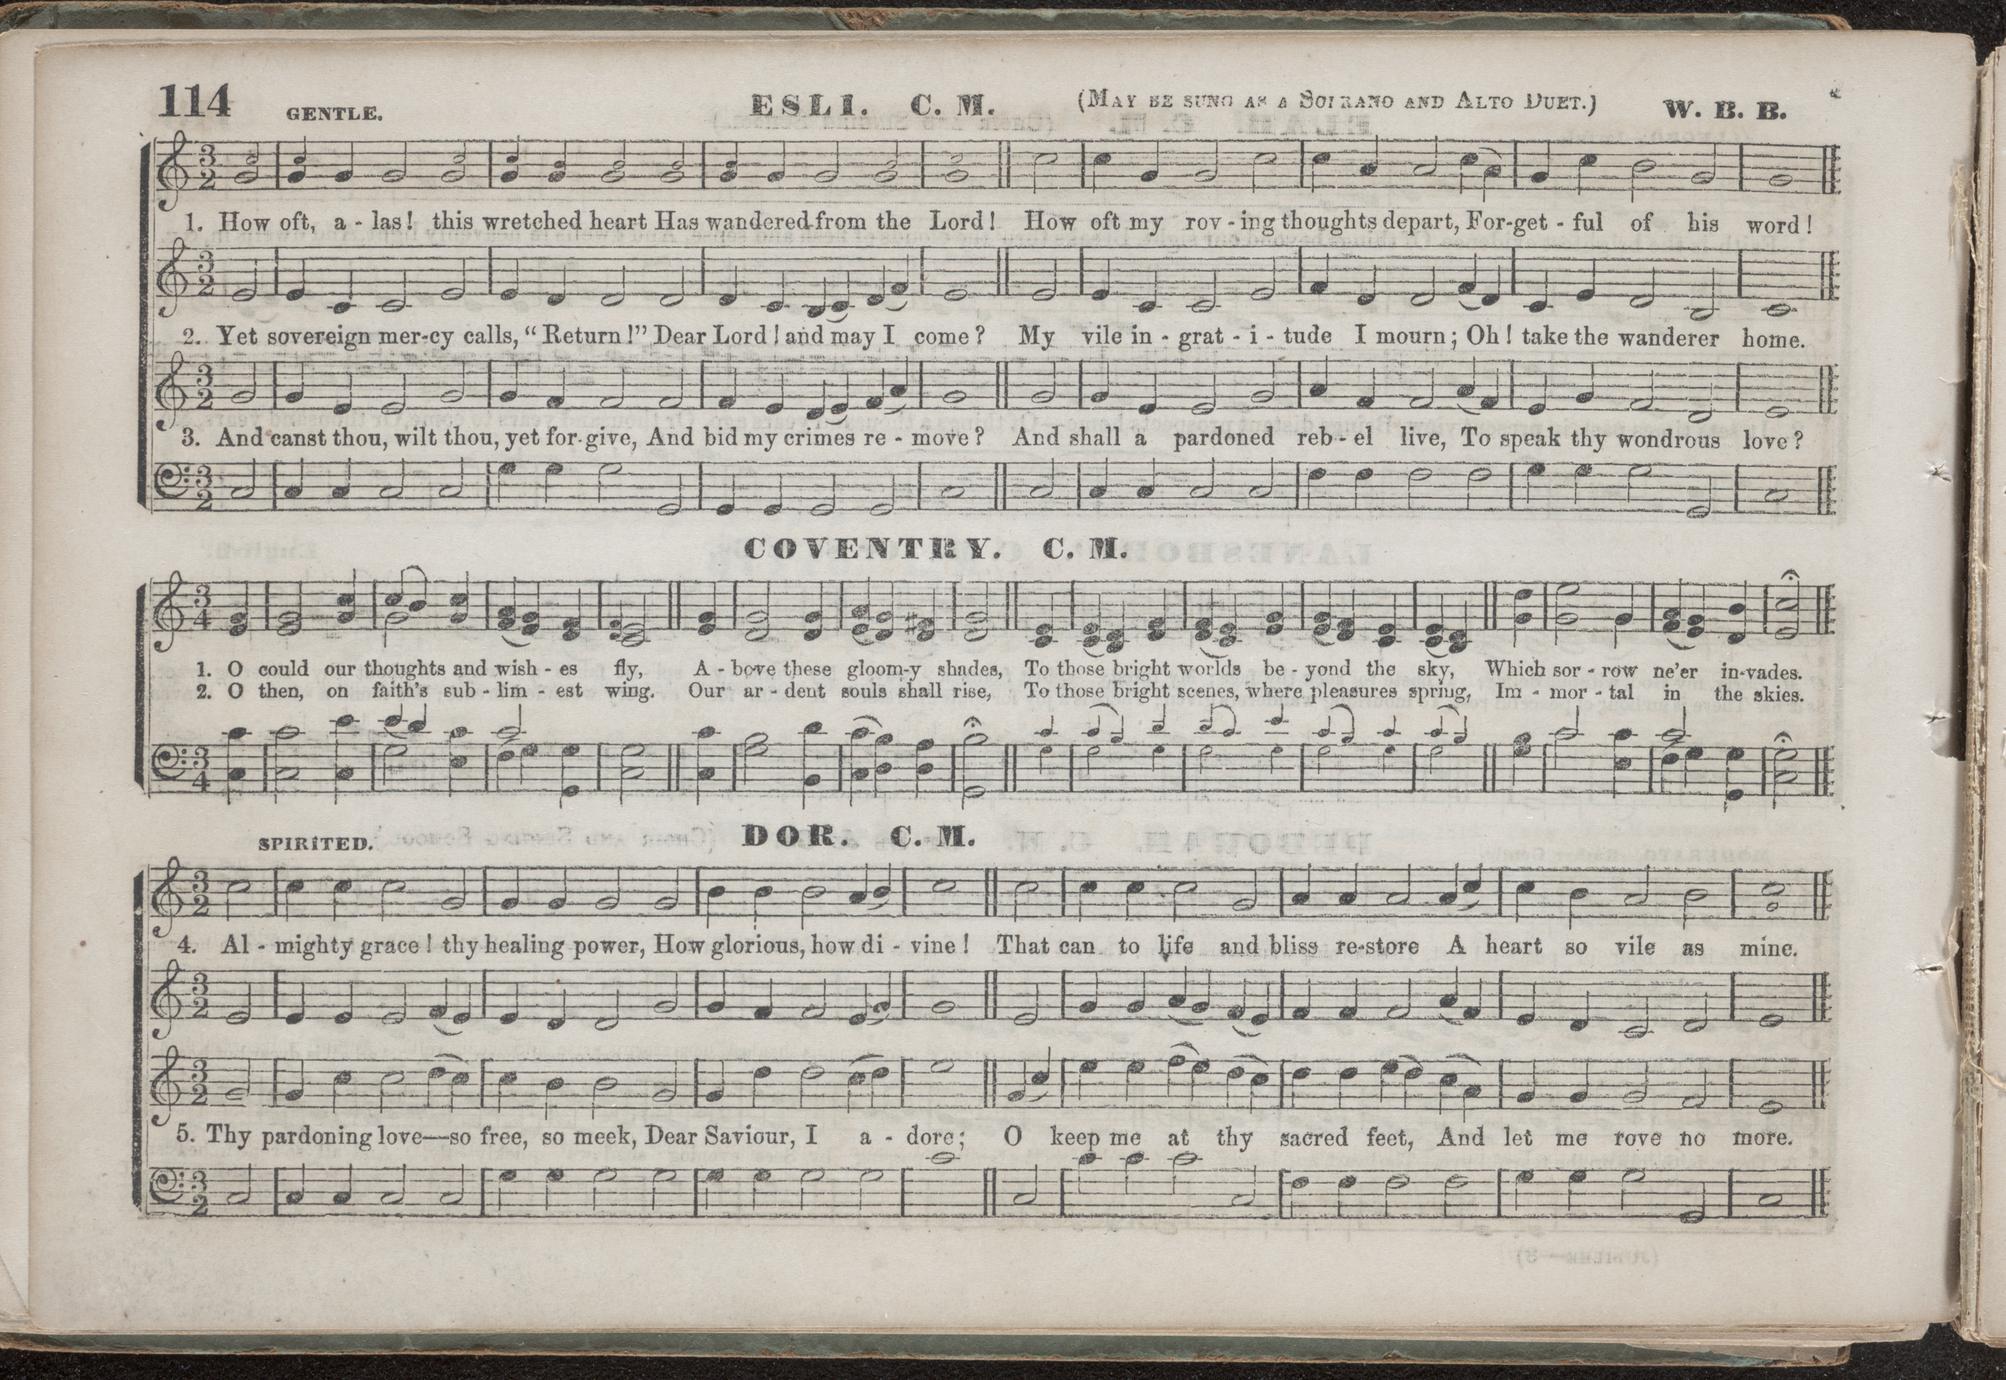 114 GENTLE. ESLI. C. M. (MAY BE SUNG AS A SOPRANO AND ALTO DUET.) W. B. B.
1. How oft, a - las! this wretched heart Has wandered from the Lord! How oft my rov - ing thoughts depart, For-get - ful of his word!
2. Yet sovereign mer-cy calls, "Return!" Dear Lord! and may I come? My vile in - grat - i - tude I mourn; Oh! take the wanderer home.
3. And canst thou, wilt thou, yet for-give, And bid my crimes re - move? And shall a pardoned reb - el live, To speak thy wondrous love?
COVENTRY. C. M.
1. O could our thoughts and wish - es fly, A - bove these gloom-y shades, To those bright worlds be - yond the sky, Which sor - row ne'er in-vades.
2. O then, on faith's sub - lim - est wing. Our ar - dent souls shall rise, To those bright scenes, where pleasures spring, Im - mor - tal in the skies.
SPIRITED. DOR. C. M.
4. Al - mighty grace! thy healing power, How glorious, how di - vine! That can to life and bliss re-store A heart so vile as mine.
5. Thy pardoning love—so free, so meek, Dear Saviour, I a - dore; O keep me at thy sacred feet, And let me rove no more.